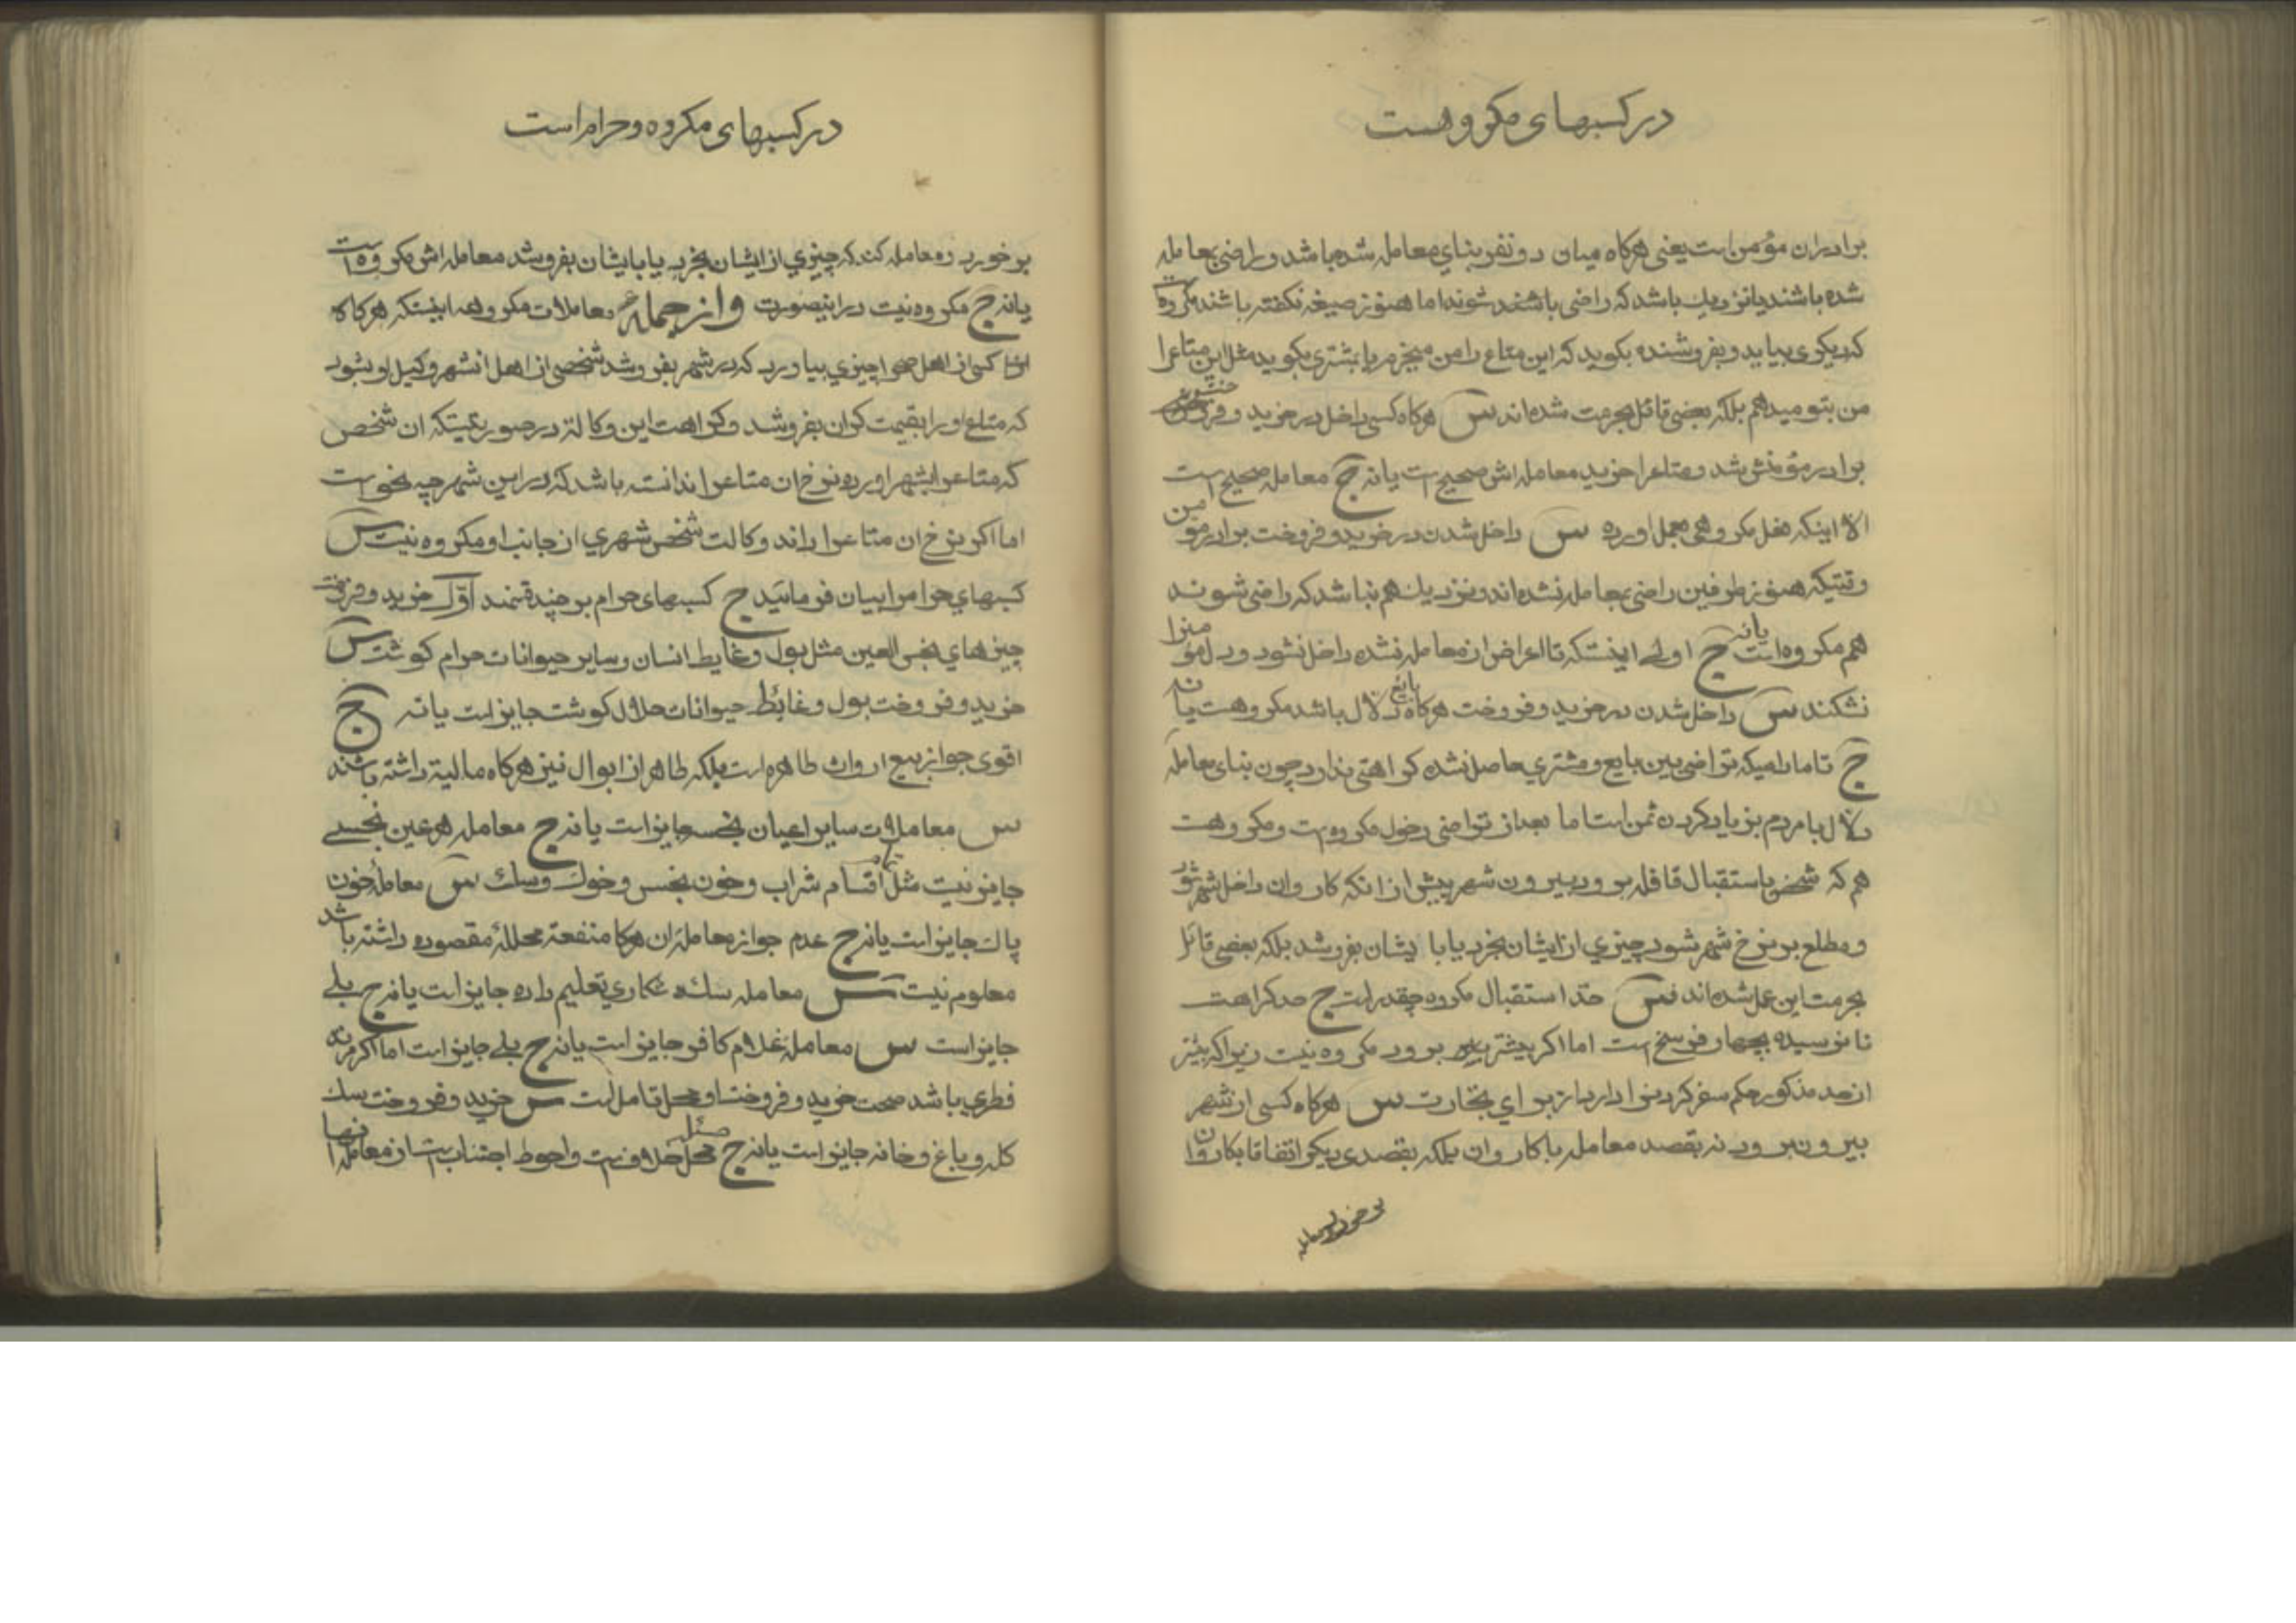 در کسبهای مکروهست
برادران مؤمن است یعنی هرکاه میان دو نفر بنای معامله شده باشد و راضی بمعامله
شده باشند یا نزدیك باشد که راضی باشند شوند اما هنوز صیغه نکفته باشند مکروه است
که دیکری بیاید و بفروشنده بکوید که این متاع را من میخرم یا بمشتری بکوید مثل این متاع را
من بتو میدهم بلکه بعضی قائل بحرمت شده اند س هرکاه کسی داخل در خرید و فروخت
برادر مؤمنش شد و متاع را خرید معامله اش صحیح است یا نه ج معامله صحیح است
الا اینکه فعل مکروهی بعمل اورده س داخل شدن در خرید و فروخت برادر مؤمن
وقتیکه هنوز طرفین راضی بمعامله نشده اند و نزدیك هم نباشد که راضی شوند
هم مکروه است یا نه ج اولی اینستکه تا اعراض از معامله نشده داخل نشود و دل مؤمنرا
نشکند س داخل شدن در خرید و فروخت هرکاه بایع دلال باشد مکروهست یا نه
ج تا مادامیکه تراضی بین بایع و مشتری حاصل نشده کراهتی ندارد چون بنای معامله
دلال با مردم بزیاد کردن ثمن است اما بعد از تراضی دخول مکروه است و مکروهست
هم که شخص باستقبال قافله برود بیرون شهر پیش از انکه کاروان داخل شهر شود
و مطلع بر نرخ شهر شود چیزی از ایشان بخرد یا با ایشان بفروشد بلکه بعضی قائل
بحرمت این عمل شده اند س حد استقبال مکروه چقدر است ج حد کراهت
تا نرسیده بچهار فرسخ است اما اکر بیشتر برود مکروه نیست زیراکه بیشتر
از حد مذکور حکم سفر کردنرا دارد از برای تجارت س هرکاه کسی از شهر
بیرون برود نه بقصد معامله با کاروان بلکه بقصد دیکر اتفاقا بکاروان
بر خورد و معامله
در کسبهای مکروه و حرام است
بر خورد و معامله کند که چیزی از ایشان بخرد یا بایشان بفروشد معامله اش مکروه است
یا نه ج مکروه نیست در اینصورت و از جمله معاملات مکروهه اینستکه هرکاه
کسی از اهل صحرا چیزی بیاورد که در شهر بفروشد شخصی از اهل انشهر وکیل او بشود
که متاع او را بقیمت کران بفروشد و کراهت این وکالة در صورتیستکه ان شخص
که متاعرا بشهر اورده نرخ ان متاعرا ندانسته باشد که در این شهر چه نحو است
اما اکر نرخ ان متاعرا داند وکالت شخص شهری از جانب او مکروه نیست س
کسبهای حرامرا بیان فرمائید ج کسبهای حرام بر چند قسمند اوّل خرید و فروخت
چیزهای نجس العین مثل بول و غایط انسان و سایر حیوانات حرام کوشت س
خرید و فروخت بول و غائط حیوانات حلال کوشت جایز است یا نه ج
اقوی جواز بیع ارواث طاهره است بلکه طاهر از ابوال نیز هرکاه مالیة داشته باشند
س معاملات سایر اعیان نجسه جایز است یا نه ج معامله هر عین نجسی
جایز نیست مثل تمام اقسام شراب و خون نجس و خوك و سك س معامله خون
پاك جایز است یا نه ج عدم جواز معامله ان هرکا منفعة محلله مقصوده داشته باشد
معلوم نیست س معامله سك شکاری تعلیم داده جایز است یا نه ج بلی
جایز است س معامله غلام کافر جایز است یا نه ج بلی جایز است اما اکر مرتد
فطری باشد صحت خرید و فروخت او محل تامل است س خرید و فروخت سك
کله و باغ و خانه جایز است یا نه ج مسئله محل خلافست و احوط اجتناب است از معامله انها